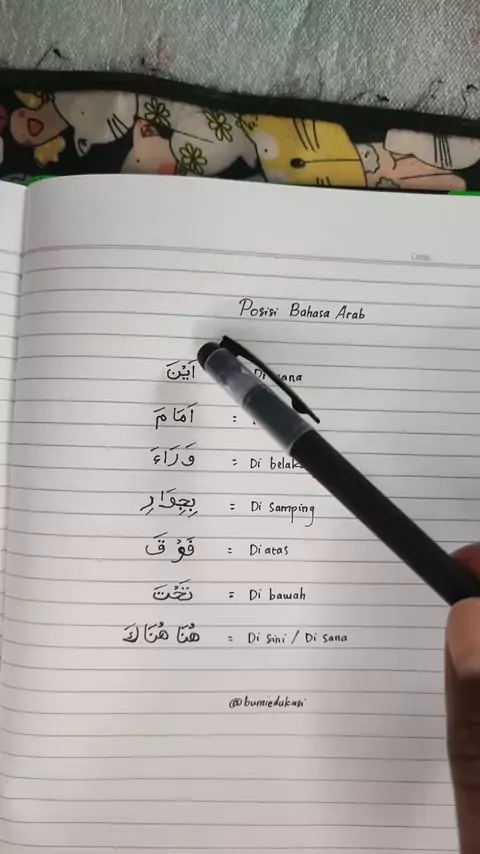 Date
Posisi Bahasa Arab
اَيْنَ Di mana
اَمَامَ :
وَرَاءَ = Di belak
بِجِوَارِ = Di samping
فَوْقَ = Di atas
تَحْتَ = Di bawah
هُنَا هُنَاكَ = Di sini / Di sana
@bumiedukasi